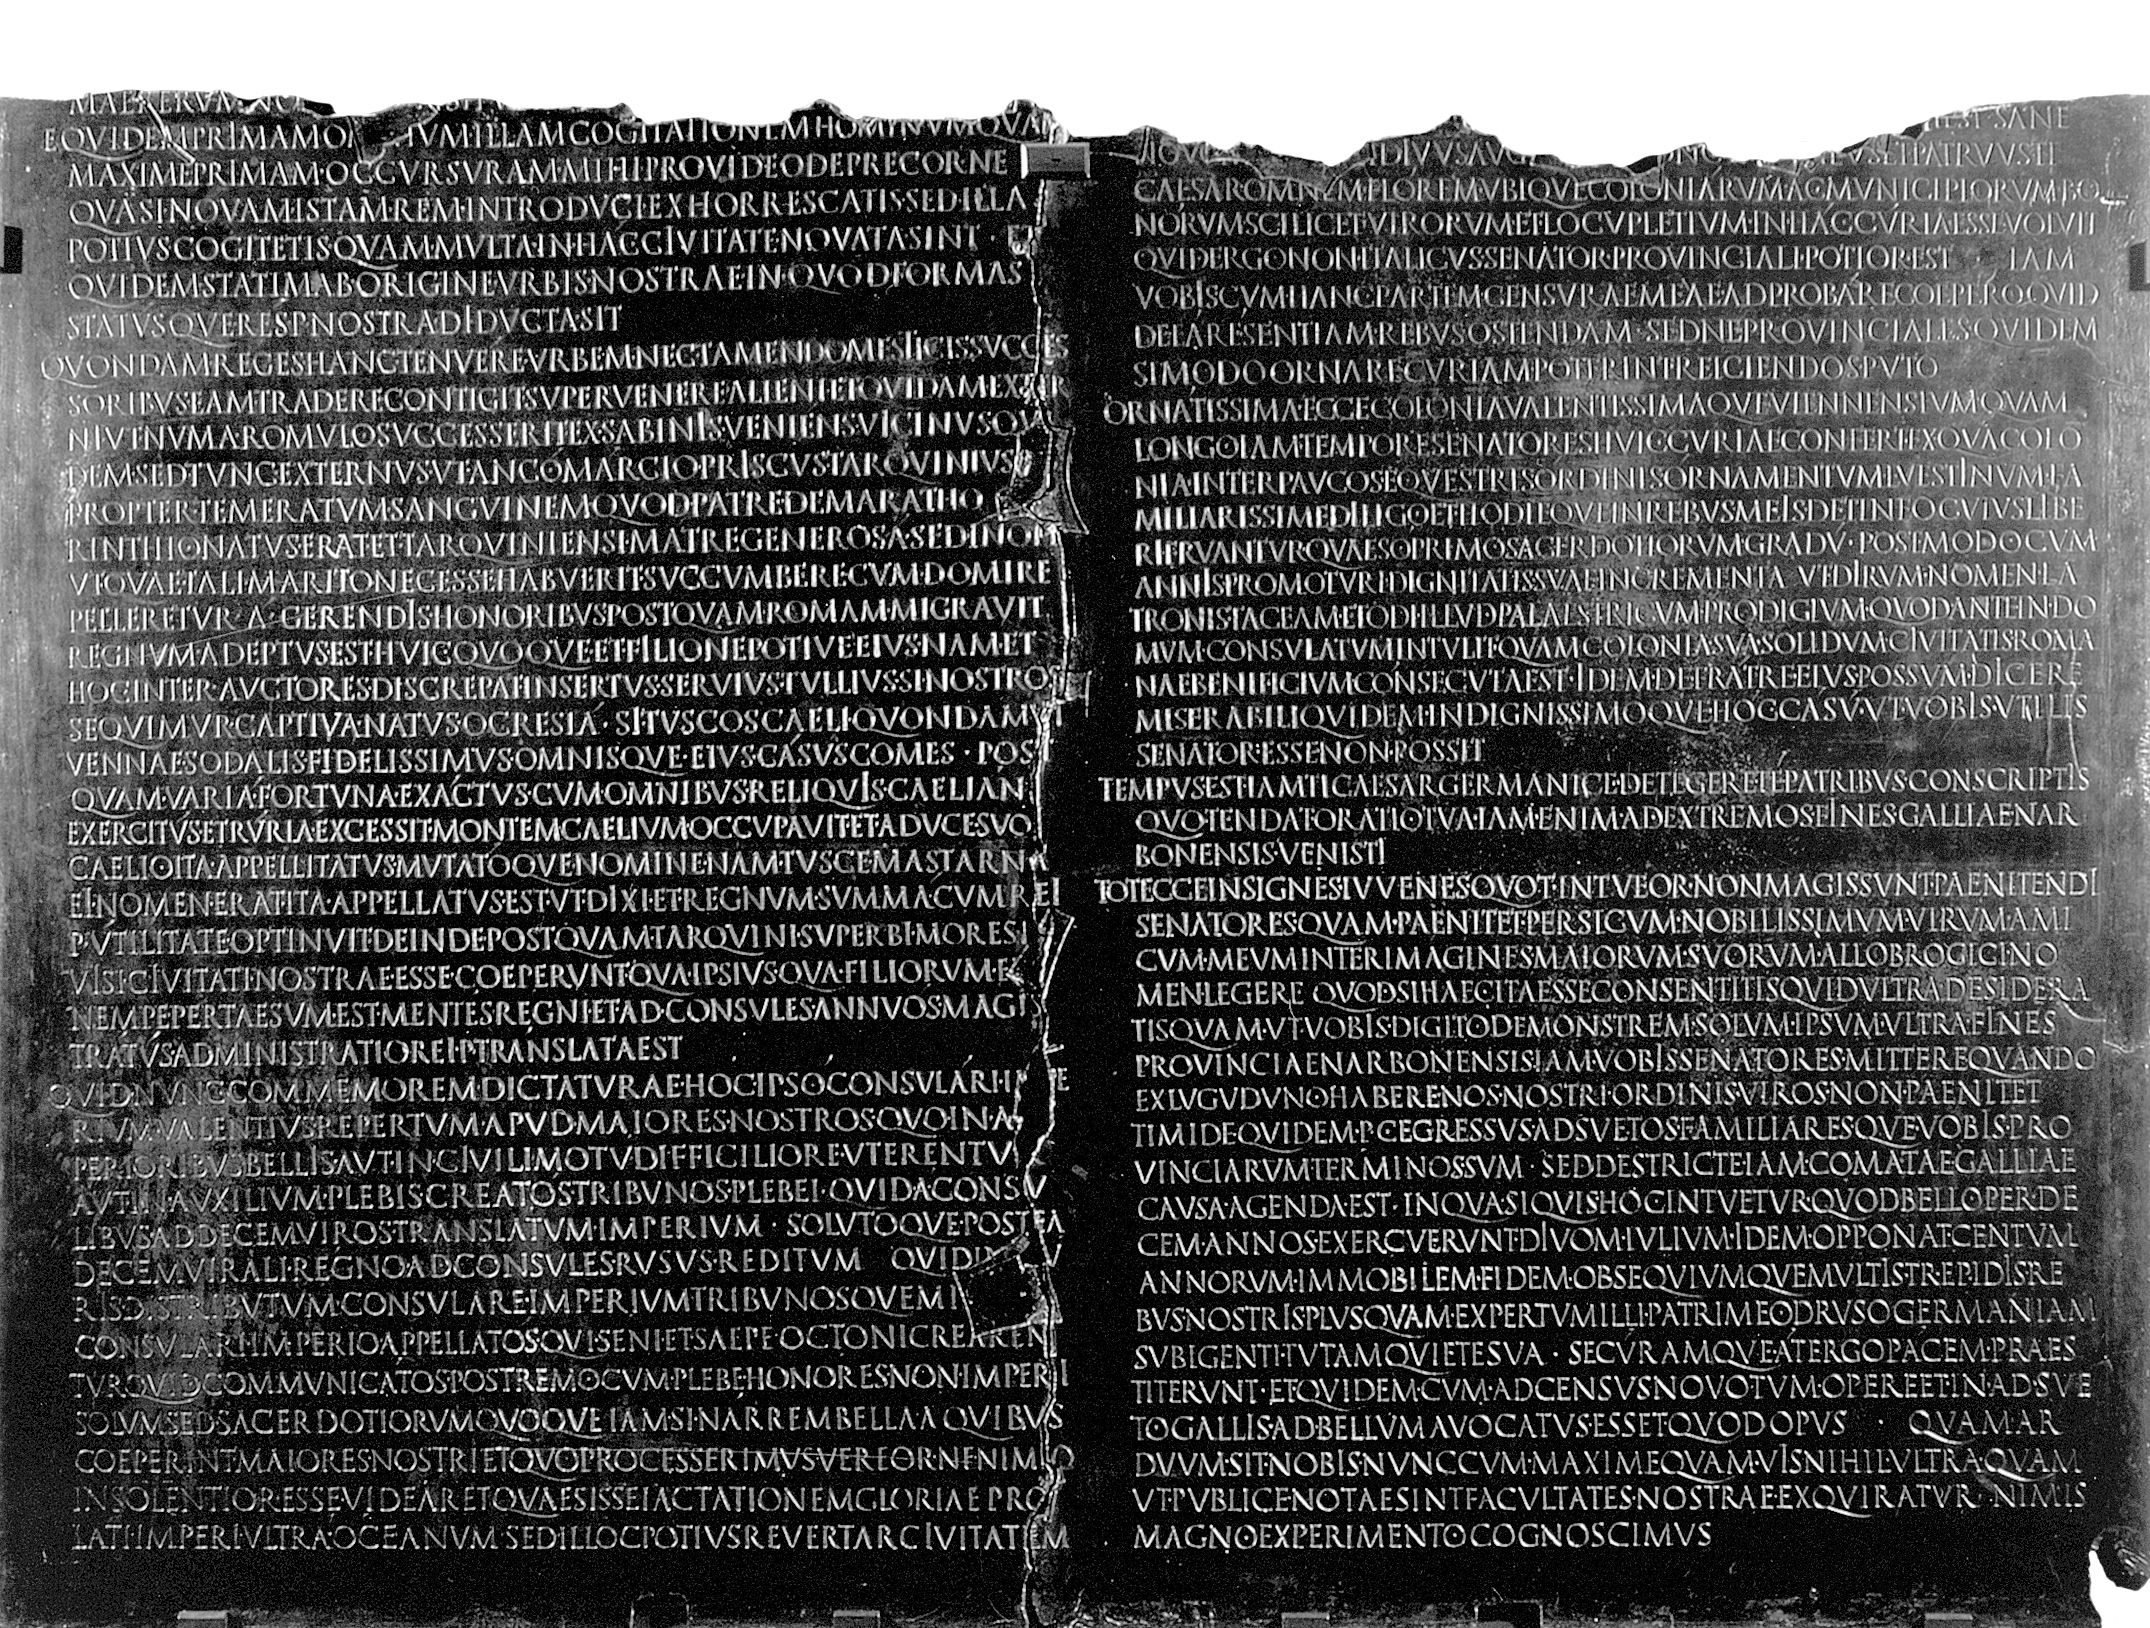 MAE RERVM NO SIT
EQVIDEM PRIMAM O IVM ILLAM COGITATIONEM HOMINVM QVAM
MAXIME PRIMAM OCCVRSVRAM MIHI PROVIDEO DEPRECOR NE
QVASI NOVAM ISTAM REM INTRODVCI EXHORRESCATIS SED ILLA
POTIVS COGITETIS QVAM MVLTA IN HAC CIVITATE NOVATA SINT ET
QVIDEM STATIM AB ORIGINE VRBIS NOSTRAE IN QVOD FORMAS
STATVSQVE RES P NOSTRA DIDVCTA SIT
QVONDAM REGES HANC TENVERE VRBEM NEC TAMEN DOMESTICIS SVCCES
SORIBVS EAM TRADERE CONTIGIT SVPERVENERE ALIENI ET QVIDAM EXTER
NI VT NVMA ROMVLO SVCCESSERIT EX SABINIS VENIENS VICINVS QVI
DEM SED TVNC EXTERNVS VT ANCO MARCIO PRISCVS TARQVINIVS
PROPTER TEMERATVM SANGVINEM QVOD PATRE DEMARATHO
RINTHIO NATVS ERAT ET TARQVINIENSI MATRE GENEROSA SED INOP
VT QVAE TALI MARITO NECESSE HABVERIT SVCCVMBERE CVM DOMI RE
PELLERETVR A GERENDIS HONORIBVS POSTQVAM ROMAM MIGRAVIT
REGNVM ADEPTVS EST HVIC QVOQVE ET FILIO NEPOTIVE EIVS NAM ET
HOC INTER AVCTORES DISCREPAT INSERTVS SERVIVS TVLLIVS SI NOSTROS
SEQVIMVR CAPTIVA NATVS OCRESIA SI TVSCOS CAELI QVONDAM VI
VENNAE SODALIS FIDELISSIMVS OMNISQVE EIVS CASVS COMES POST
QVAM VARIA FORTVNA EXACTVS CVM OMNIBVS RELIQVIS CAELIANI
EXERCITVS ETRVRIA EXCESSIT MONTEM CAELIVM OCCVPAVIT ET A DVCE SVO
CAELIO ITA APPELLITATVS MVTATOQVE NOMINE NAM TVSCE MASTARNA
EI NOMEN ERAT ITA APPELLATVS EST VT DIXI ET REGNVM SVMMA CVM REI
P VTILITATE OPTINVIT DEINDE POSTQVAM TARQVINI SVPERBI MORES I
VISI CIVITATI NOSTRAE ESSE COEPERVNT QVA IPSIVS QVA FILIORVM E
NEMPE PERTAESVM EST MENTES REGNI ET AD CONSVLES ANNVOS MAGIS
TRATVS ADMINISTRATIO REI P TRANSLATA EST
QVID NVNC COMMEMOREM DICTATVRAE HOC IPSO CONSVLARI IMPE
RIVM VALENTIVS REPERTVM APVD MAIORES NOSTROS QVO IN A
PERIORIBVS BELLIS AVT IN CIVILI MOTV DIFFICILIORE VTERENTVR
AVT IN AVXILIVM PLEBIS CREATOS TRIBVNOS PLEBEI QVID A CONSV
LIBVS AD DECEMVIROS TRANSLATVM IMPERIVM SOLVTOQVE POSTEA
DECEMVIRALI REGNO AD CONSVLES RVSVS REDITVM QVID IN V
RIS DISTRIBVTVM CONSVLARE IMPERIVM TRIBVNOSQVE MI
CONSVLARI IMPERIO APPELLATOS QVI SENI ET SAEPE OCTONI CREAREN
TVR QVID COMMVNICATOS POSTREMO CVM PLEBE HONORES NON IMPERI
SOLVM SED SACERDOTIORVM QVOQVE IAM SI NARREM BELLA A QVIBVS
COEPERINT MAIORES NOSTRI ET QVO PROCESSERIMVS VEREOR NE NIMIO
INSOLENTIOR ESSE VIDEAR ET QVAESISSE IACTATIONEM GLORIAE PRO
LATI IMPERI VLTRA OCEANVM SED ILLOC POTIVS REVERTAR CIVITATEM
EST SANE
NOVO DIVVS AVG NC VS ET PATRVVS TI
CAESAR OMNEM FLOREM VBIQVE COLONIARVM AC MVNICIPIORVM BO
NORVM SCILICET VIRORVM ET LOCVPLETIVM IN HAC CVRIA ESSE VOLVIT
QVID ERGO NON ITALICVS SENATOR PROVINCIALI POTIOR EST IAM
VOBIS CVM HANC PARTEM CENSVRAE MEAE ADPROBARE COEPERO QVID
DE EA RE SENTIAM REBVS OSTENDAM SED NE PROVINCIALES QVIDEM
SI MODO ORNARE CVRIAM POTERINT REICIENDOS PVTO
ORNATISSIMA ECCE COLONIA VALENTISSIMAQVE VIENNENSIVM QVAM
LONGO IAM TEMPORE SENATORES HVIC CVRIAE CONFERT EX QVA COLO
NIA INTER PAVCOS EQVESTRIS ORDINIS ORNAMENTVM L VESTINVM FA
MILIARISSIME DILIGO ET HODIEQVE IN REBVS MEIS DETINEO CVIVS LIBE
RI FRVANTVR QVAESO PRIMO SACERDOTIORVM GRADV POST MODO CVM
ANNIS PROMOTVRI DIGNITATIS SVAE INCREMENTA VT DIRVM NOMEN LA
TRONIS TACEAM ET ODI ILLVD PALAESTRICVM PRODIGIVM QVOD ANTE IN DO
MVM CONSVLATVM INTVLIT QVAM COLONIA SVA SOLIDVM CIVITATIS ROMA
NAE BENIFICIVM CONSECVTA EST IDEM DE FRATRE EIVS POSSVM DICERE
MISERABILI QVIDEM INDIGNISSIMOQVE HOC CASV VT VOBIS VTILIS
SENATOR ESSE NON POSSIT
TEMPVS EST IAM TI CAESAR GERMANICE DETEGERE TE PATRIBVS CONSCRIPTIS
QVO TENDAT ORATIO TVA IAM ENIM AD EXTREMOS FINES GALLIAE NAR
BONENSIS VENISTI
TOT ECCE INSIGNES IVVENES QVOT INTVEOR NON MAGIS SVNT PAENITENDI
SENATORES QVAM PAENITET PERSICVM NOBILISSIMVM VIRVM AMI
CVM MEVM INTER IMAGINES MAIORVM SVORVM ALLOBROGICI NO
MEN LEGERE QVOD SI HAEC ITA ESSE CONSENTITIS QVID VLTRA DESIDERA
TIS QVAM VT VOBIS DIGITO DEMONSTREM SOLVM IPSVM VLTRA FINES
PROVINCIAE NARBONENSIS IAM VOBIS SENATORES MITTERE QVANDO
EX LVGVDVNO HABERE NOS NOSTRI ORDINIS VIROS NON PAENITET
TIMIDE QVIDEM P C EGRESSVS ADSVETOS FAMILIARESQVE VOBIS PRO
VINCIARVM TERMINOS SVM SED DESTRICTE IAM COMATAE GALLIAE
CAVSA AGENDA EST IN QVA SI QVIS HOC INTVETVR QVOD BELLO PER DE
CEM ANNOS EXERCVERVNT DIVOM IVLIVM IDEM OPPONAT CENTVM
ANNORVM IMMOBILEM FIDEM OBSEQVIVMQVE MVLTIS TREPIDIS RE
BVS NOSTRIS PLVS QVAM EXPERTVM ILLI PATRI MEO DRVSO GERMANIAM
SVBIGENTI TVTAM QVIETE SVA SECVRAMQVE A TERGO PACEM PRAES
TITERVNT ET QVIDEM CVM AD CENSVS NOVO TVM OPERE ET INADSVE
TO GALLIS AD BELLVM AVOCATVS ESSET QVOD OPVS QVAM AR
DVVM SIT NOBIS NVNC CVM MAXIME QVAMVIS NIHIL VLTRA QVAM
VT PVBLICE NOTAE SINT FACVLTATES NOSTRAE EXQVIRATVR NIMIS
MAGNO EXPERIMENTO COGNOSCIMVS